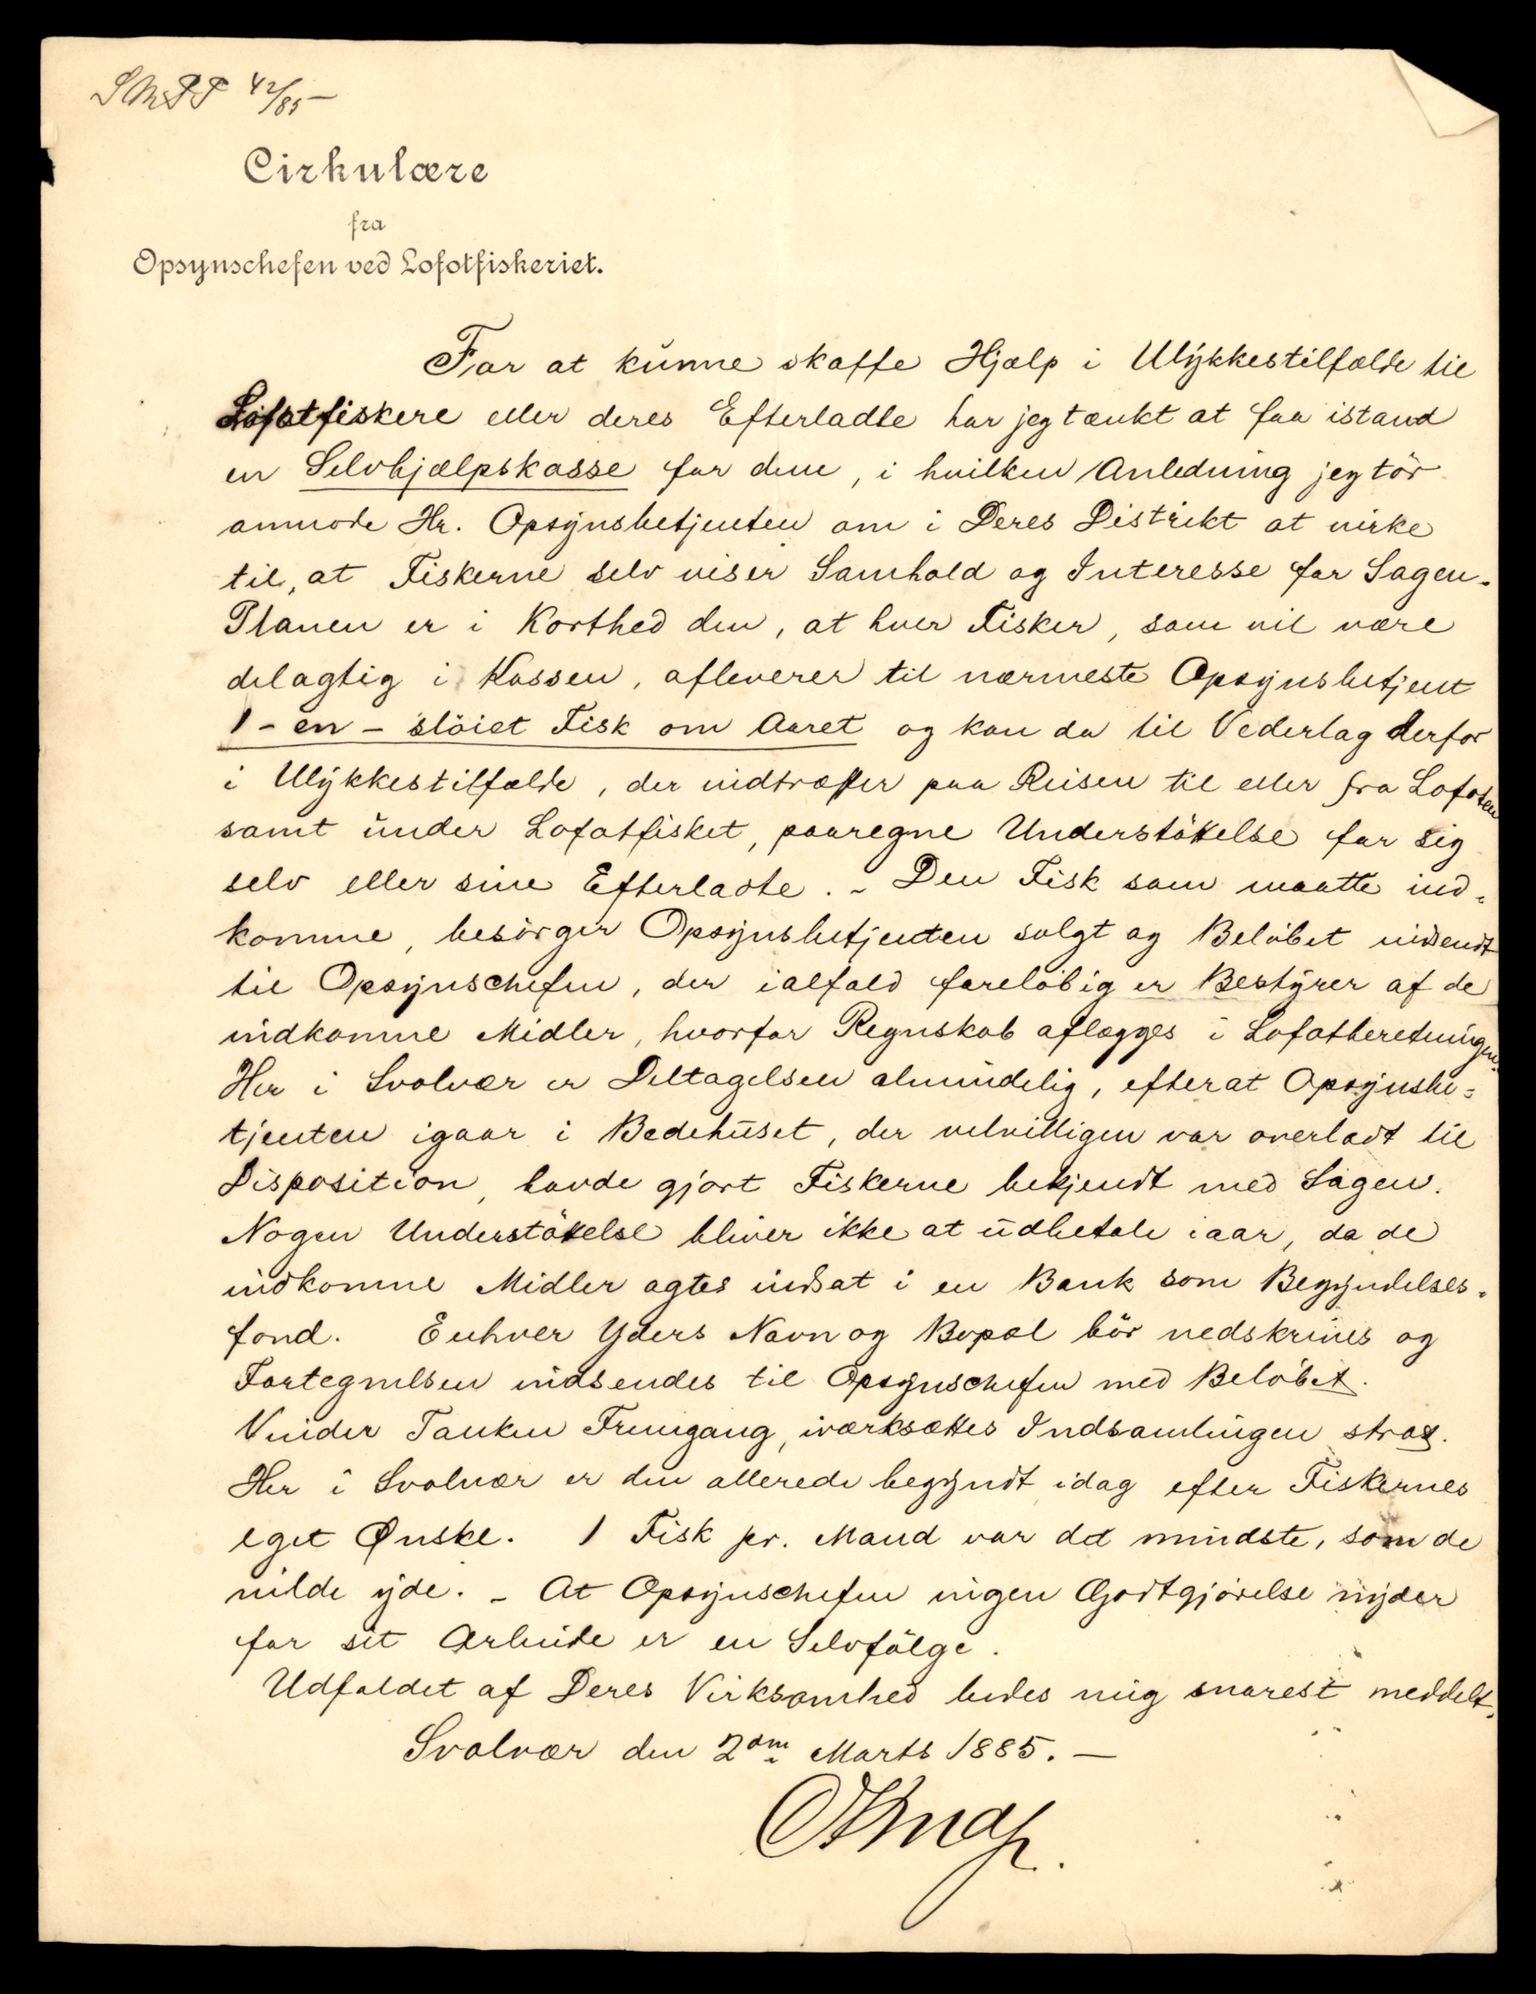 42/85
Cirkulære
fra
Opsynschefen ved Lofotfiskeriet.
For at kunne skaffe Hjælp i Ulykkestilfælde til
Lofotfiskere eller deres Efterladte har jeg tænkt at faa istand
en Selvhjælpskasse for dem, i hvilken Anledning jeg tör
anmode Hr. Opsynsbetjenten om i Deres Distrikt at virke
til, at Fiskerne selv viser Samhold og Interesse for Sagen.
Planen er i Korthed den, at hver Fisker, som vil være
delagtig i Kassen, afleverer til nærmeste Opsynsbetjent
1 - en - slöiet Fisk om Aaret og kan da til Vederlag derfor
i Ulykkestilfælde, der indtræffer paa Reisen til eller fra Lofoten
samt under Lofotfisket, paaregne Understöttelse for sig
selv eller sine Efterladte. - Den Fisk som maatte ind-
komme, besörger Opsynsbetjenten solgt og Belöbet indsendt
til Opsynschefen, der ialfald foreløbig er Bestyrer af de
indkomne Midler, hvorfor Regnskab aflægges i Lofotberetningen.
Her i Svolvær er Deltagelsen almindelig, efterat Opsynsbe-
tjenten igaar i Bedehuset, der velvilligen var overladt til
Disposition, havde gjort Fiskerne bekjendt med Sagen.
Nogen Understöttelse bliver ikke at udbetale iaar, da de
indkomne Midler agtes indsat i en Bank som Begyndelses-
fond. Enhver Yders Navn og Bopæl bör nedskrives og
Fortegnelsen indsendes til Opsynschefen med Belöbet.
Vinder Tanken Fremgang, iværksættes Indsamlingen strax.
Her i Svolvær er den allerede begyndt idag efter Fiskernes
eget Ønske. 1 Fisk pr. Mand var det mindste, som de
vilde yde. - At Opsynschefen ingen Godtgjörelse nyder
for sit Arbeide er en Selvfölge.
Udfaldet af Deres Virksomhed bedes mig snarest meddelt.
Svolvær den 2den Marts 1885. -